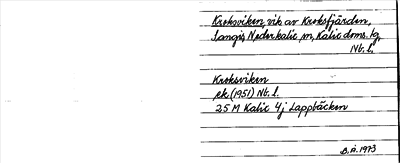 Kroksviken, vik av Kroksfjärden,
Sangis, Nederkalix sn, Kalix doms. lg,
Nb. l.
Kroksviken
ek. (1951) Nb. l.
25 M Kalix 4j Lappbäcken
B. Ä. 1973